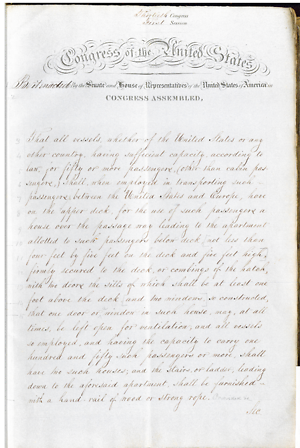 Thirtieth Congress
First Session
Congress of the United States
Be it enacted by the Senate and House of Representatives of the United States of America in
CONGRESS ASSEMBLED,
That all vessels, whether of the United States or any
other country, having sufficient capacity, according to
law, for fifty or more passengers, (other than cabin pas-
sengers,) shall, when employed in transporting such
passengers between the United States and Europe, have
on the upper deck, for the use of such passengers, a
house over the passage way leading to the apartment
allotted to such passengers below deck, not less than
four feet by five feet on the deck and five feet high,
firmly secured to the deck, or combings of the hatch,
with two doors, the sills of which shall be at least one
foot above the deck, and two windows so constructed,
that one door or window in such house, may, at all
times, be left open for ventilation; and all vessels
so employed, and having the capacity to carry one
hundred and fifty such passengers or more, shall
have two such houses; and the stairs or ladder, leading
down to the aforesaid apartment, shall be furnished
with a hand-rail of wood or strong rope.